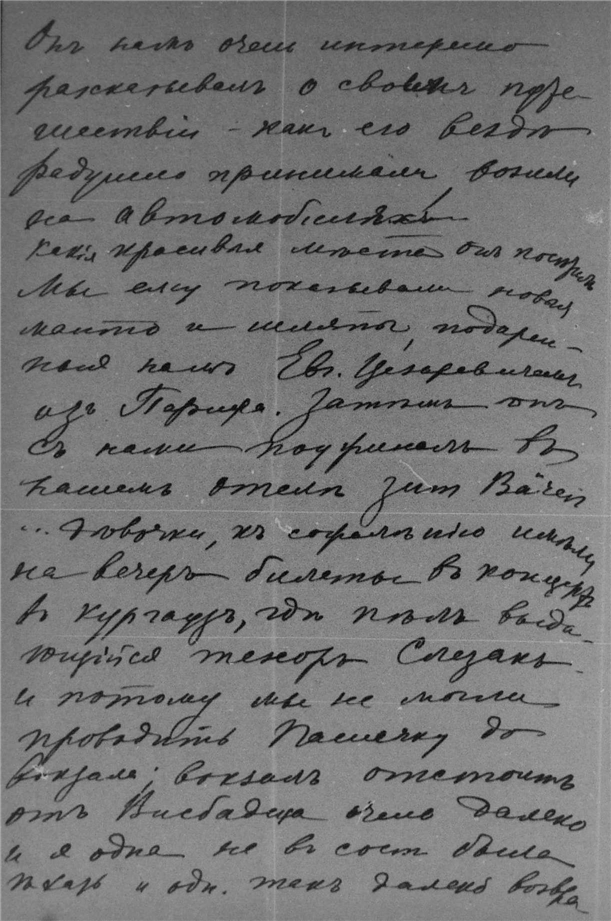 Онъ намъ очень интересно
разсказывалъ о своемъ путе-
шествіи – какъ его вездѣ
радушно принимали возили
на автомобиляхъ
какія красивыя мѣста онъ
Мы ему показывали новая
манто и шляпы, подарен-
ныя намъ Евг. Цезаревичемъ
изъ Парижа. Затѣмъ онъ
съ нами поужиналъ въ
нашемъ отелѣ
... дѣвочки, къ сожалѣнію имѣли
на вечеръ билеты въ концертъ
въ кургаузъ, гдѣ пѣлъ выда-
ющійся теноръ Слезакъ
и потому мы не могли
проводить Пашечку до
вокзала; вокзалъ отстоитъ
отъ Висбадена очень далеко
и я одна не въ сост была
ѣхать и одн. такъ далеко возвра-